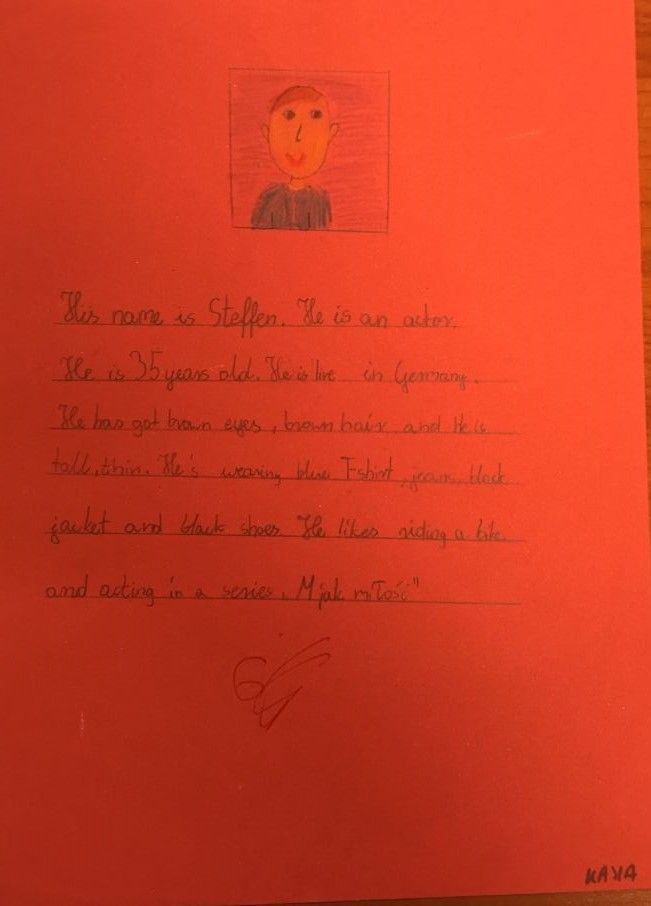 His name is Steffen. He is an actor.
He is 35 years old. He is live in Germany.
He has got brown eyes, brown hair and He is
tall, thin. He's wearing blue T-shirt, jeans, black
jacket and black shoes. He likes riding a bike
and acting in a series „M jak miłość"
6
KAYA